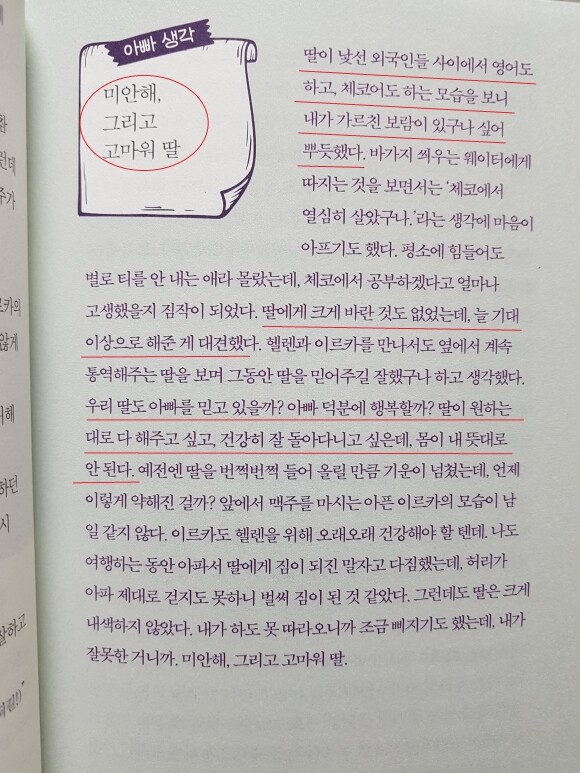 아빠 생각
미안해,
그리고
고마워 딸
딸이 낯선 외국인들 사이에서 영어도
하고, 체코어도 하는 모습을 보니
내가 가르친 보람이 있구나 싶어
뿌듯했다. 바가지 씌우는 웨이터에게
따지는 것을 보면서는 ‘체코에서
열심히 살았구나.’라는 생각에 마음이
아프기도 했다. 평소에 힘들어도
별로 티를 안 내는 애라 몰랐는데, 체코에서 공부하겠다고 얼마나
고생했을지 짐작이 되었다. 딸에게 크게 바란 것도 없었는데, 늘 기대
이상으로 해준 게 대견했다. 헬렌과 이르카를 만나서도 옆에서 계속
통역해주는 딸을 보며 그동안 딸을 믿어주길 잘했구나 하고 생각했다.
우리 딸도 아빠를 믿고 있을까? 아빠 덕분에 행복할까? 딸이 원하는
대로 다 해주고 싶고, 건강히 잘 돌아다니고 싶은데, 몸이 내 뜻대로
안 된다. 예전엔 딸을 번쩍번쩍 들어 올릴 만큼 기운이 넘쳤는데, 언제
이렇게 약해진 걸까? 앞에서 맥주를 마시는 아픈 이르카의 모습이 남
일 같지 않다. 이르카도 헬렌을 위해 오래오래 건강해야 할 텐데. 나도
여행하는 동안 아파서 딸에게 짐이 되진 말자고 다짐했는데, 허리가
아파 제대로 걷지도 못하니 벌써 짐이 된 것 같았다. 그런데도 딸은 크게
내색하지 않았다. 내가 하도 못 따라오니까 조금 삐지기도 했는데, 내가
잘못한 거니까. 미안해, 그리고 고마워 딸.